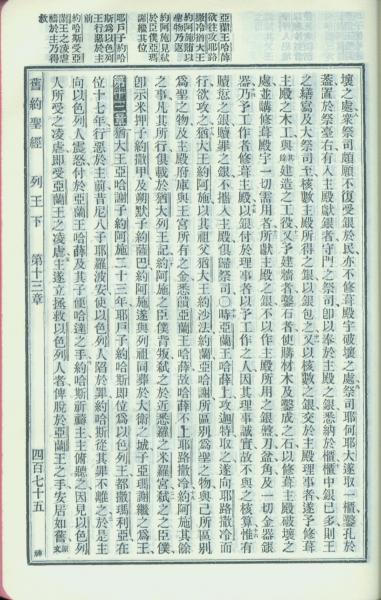 亞蘭王哈薛
欲往攻耶路
撒冷猶大王
約阿施贈以
聖物乃返
約阿施見弑
於臣僕亞瑪
謝繼其位
耶戶子約哈
斯爲以色列
王行惡於主
前
約哈斯受亞
蘭王之凌虐
禱於主乃得
救
壞之處衆祭司願不復受銀於民亦不修葺殿宇破壞之處祭司耶何耶大遂取一櫃鑿孔於
蓋置於祭臺右有人入主殿獻銀者守門之祭司卽以奉於主殿之銀悉納於櫃櫃中銀已多則王
之繕寫及大祭司至核數主殿所得之銀以銀包之又以核數之銀交於主殿理事者遂予修葺
主殿之木工與其建造之工役又予建牆者鑿石者使購材木及鑿成之石以修葺主殿破壞之
處並購修葺殿宇一切需用者所獻主殿之銀不以作主殿所用之銀盤刀盆角及一切金器銀
器乃予工作者修葺主殿以銀付於理事者以予工作之人因其理事誠實故不與之核算惟有
贖愆之銀贖罪之銀不攜入主殿俱歸祭司○時亞蘭王哈薛上攻迦特取之遂向耶路撒冷而
行欲攻之猶大王約阿施以其祖父猶大王約沙法約蘭亞哈謝所區別爲聖之物與己所區別
爲聖之物及主殿府庫與王宮所有之金悉饋亞蘭王哈薛故哈薛不上耶路撒冷約阿施其餘
之事凡其所行俱載於猶大列王記約阿施之臣僕背叛弑之於近悉羅之米羅宮弑之之臣僕
卽示米押子約撒甲及朔默子約薩巴約阿施遂與列祖同葬於大衛之城子亞瑪謝繼之爲王
第十三章猶大王亞哈謝子約阿施二十三年耶戶子約哈斯卽位爲以色列王都撒瑪利亞在
位十七年行惡於主前昔尼八子耶羅波安使以色列人陷於罪約哈斯從其罪不離之於是主
向以色列人震怒付於亞蘭王哈薛及其子便哈達之手約哈斯祈禱主主俯聽之因見以色列
人所受之凌虐卽受亞蘭王之凌虐主遂立拯救以色列人者俾脫於亞蘭王之手安居如舊原文
舊約聖經 列王下 第十三章 四百七十五